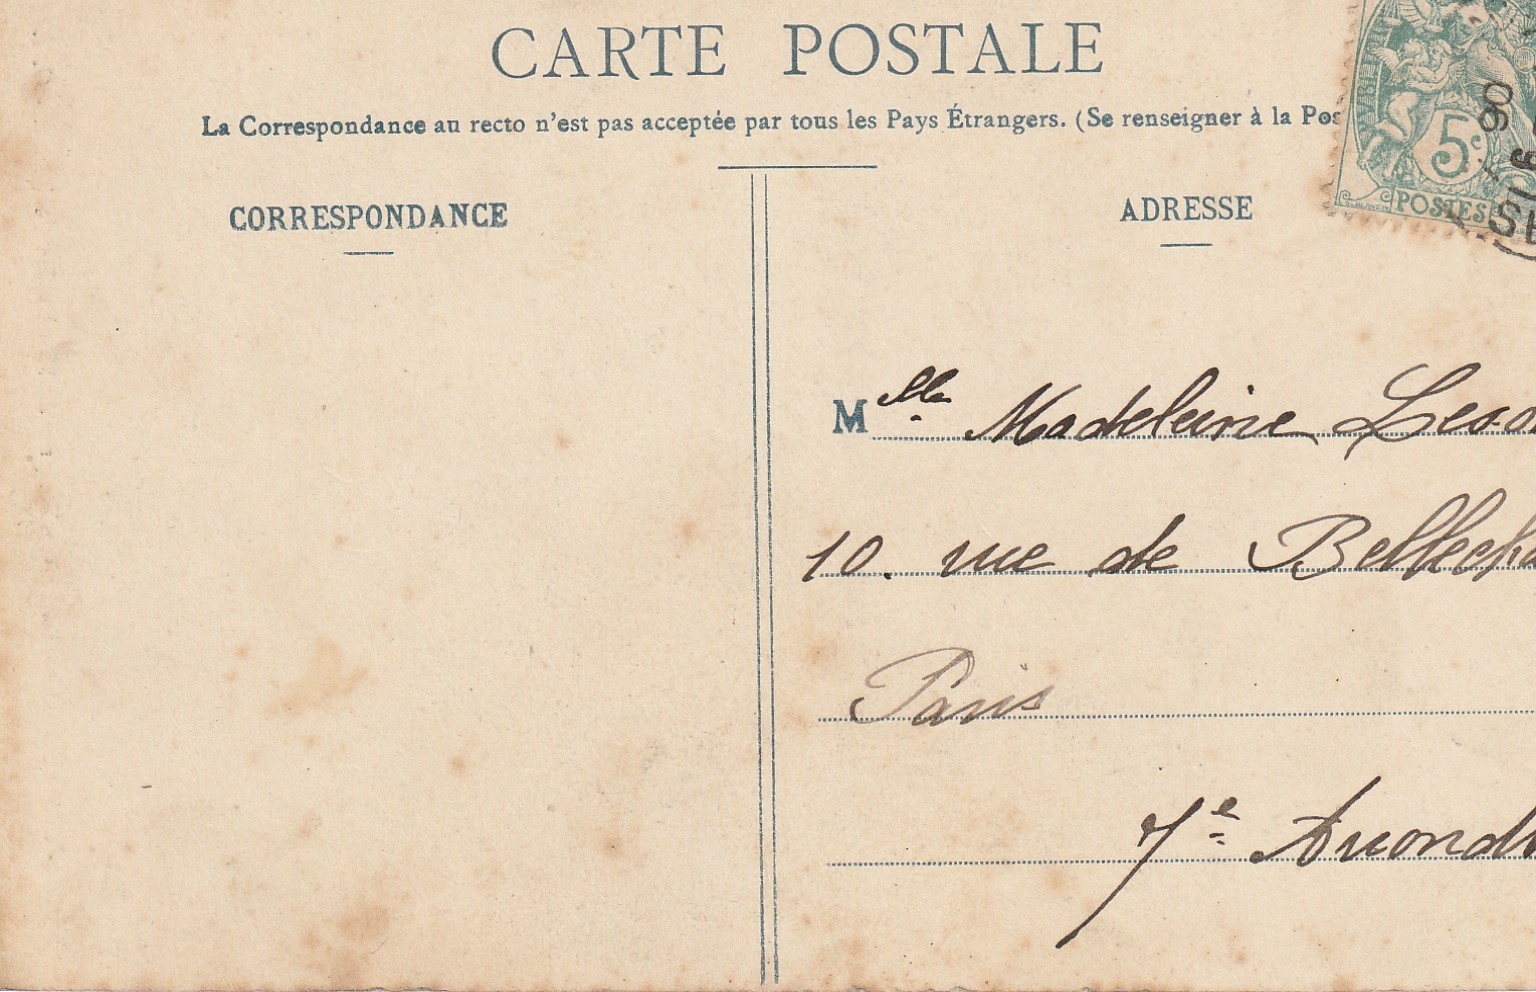 CARTE POSTALE
La Correspondance au recto n'est pas acceptée par tous les Pays Étrangers. (Se renseigner à la Pos
CORRESPONDANCE
ADRESSE
5c
POSTES
Mlle Madeleine
10. rue de Bellecha
Paris
7e Arrond